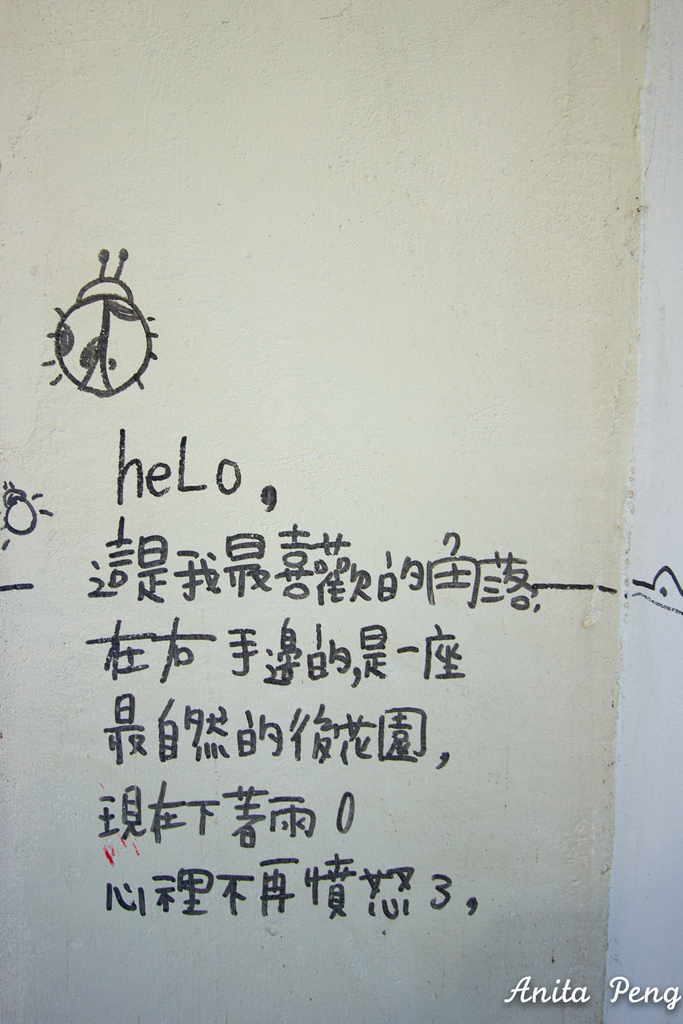 heLo,
這是我最喜歡的角落,
在右手邊的,是一座
最自然的後花園,
現在下著雨0
心裡不再憤怒3,
Anita Peng